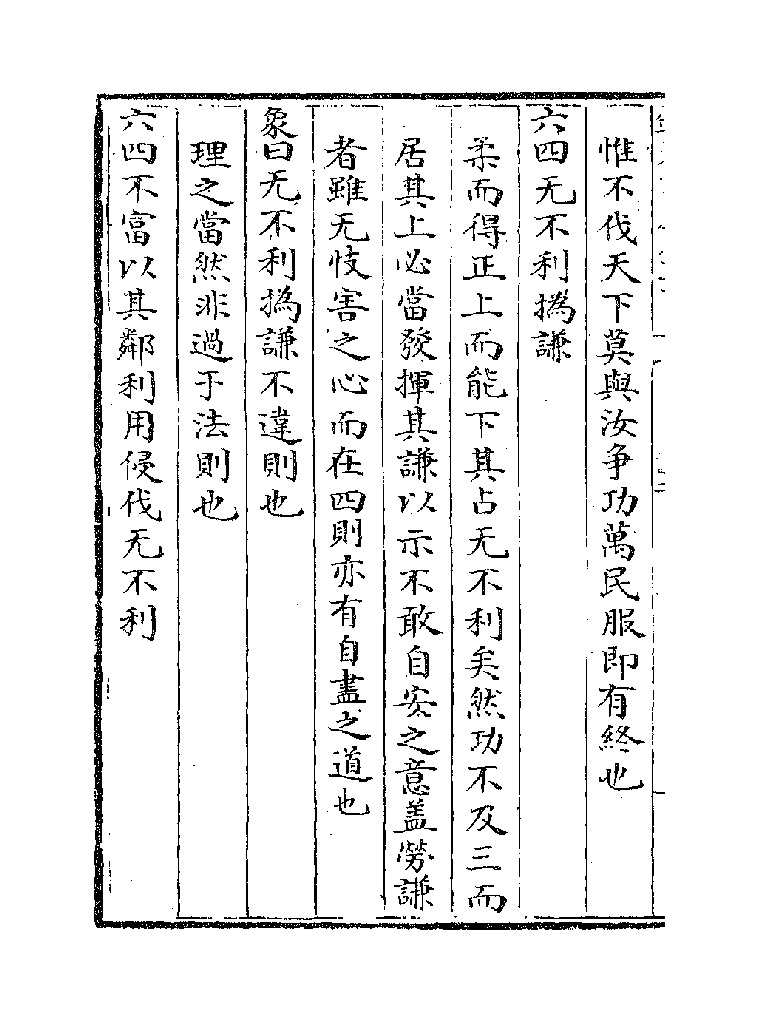 惟不伐天下莫與汝争功萬民服即有終也
六四无不利撝謙
柔而得正上而能下其占无不利矣然功不及三而
居其上必當發揮其謙以示不敢自安之意盖勞謙
者雖无忮害之心而在四則亦有自盡之道也
象曰无不利撝謙不違則也
理之當然非過于法則也
六四不富以其鄰利用侵伐无不利